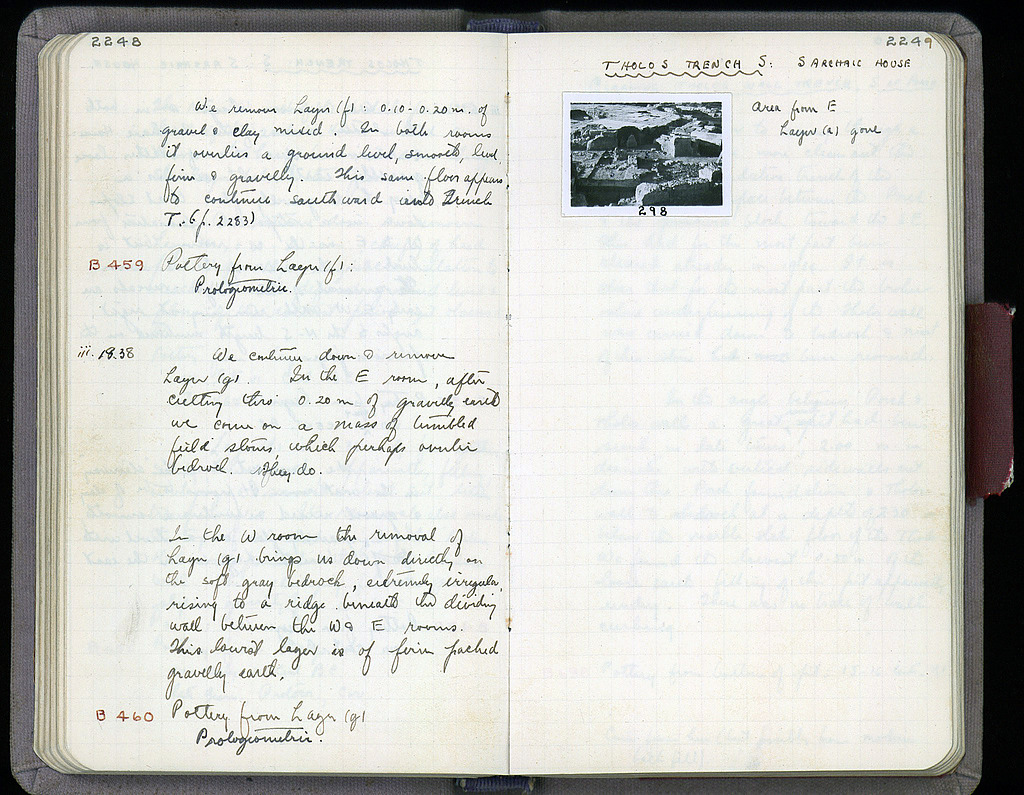 2248
We remove Layer (f): 0.10-0.20 m. of
gravel & clay mixed. In both rooms
it overlies a ground level, smooth, level
firm & gravelly. This same floor appears
to continue southward into Trench
T. (p. 2283)
B 459 Pottery from Layer (f):
Protogeometric.
iii. 19.38 We continue down & remove
Layer (g). In the E room, after
cutting thro' 0.20 m of gravelly earth
we come on a mass of tumbled
field stones, which perhaps overlie
bedrock. They do.
In the W room the removal of
Layer (g) brings us down directly on
the soft gray bedrock, extremely irregular,
rising to a ridge beneath the dividing
wall between the W & E rooms.
This lowest layer is of firm packed
gravelly earth.
B 460 Pottery from Layer (g)
Protogeometric.
2249
THOLOS TRENCH S: S ARCHAIC HOUSE
Area from E
Layer (a) gone
298